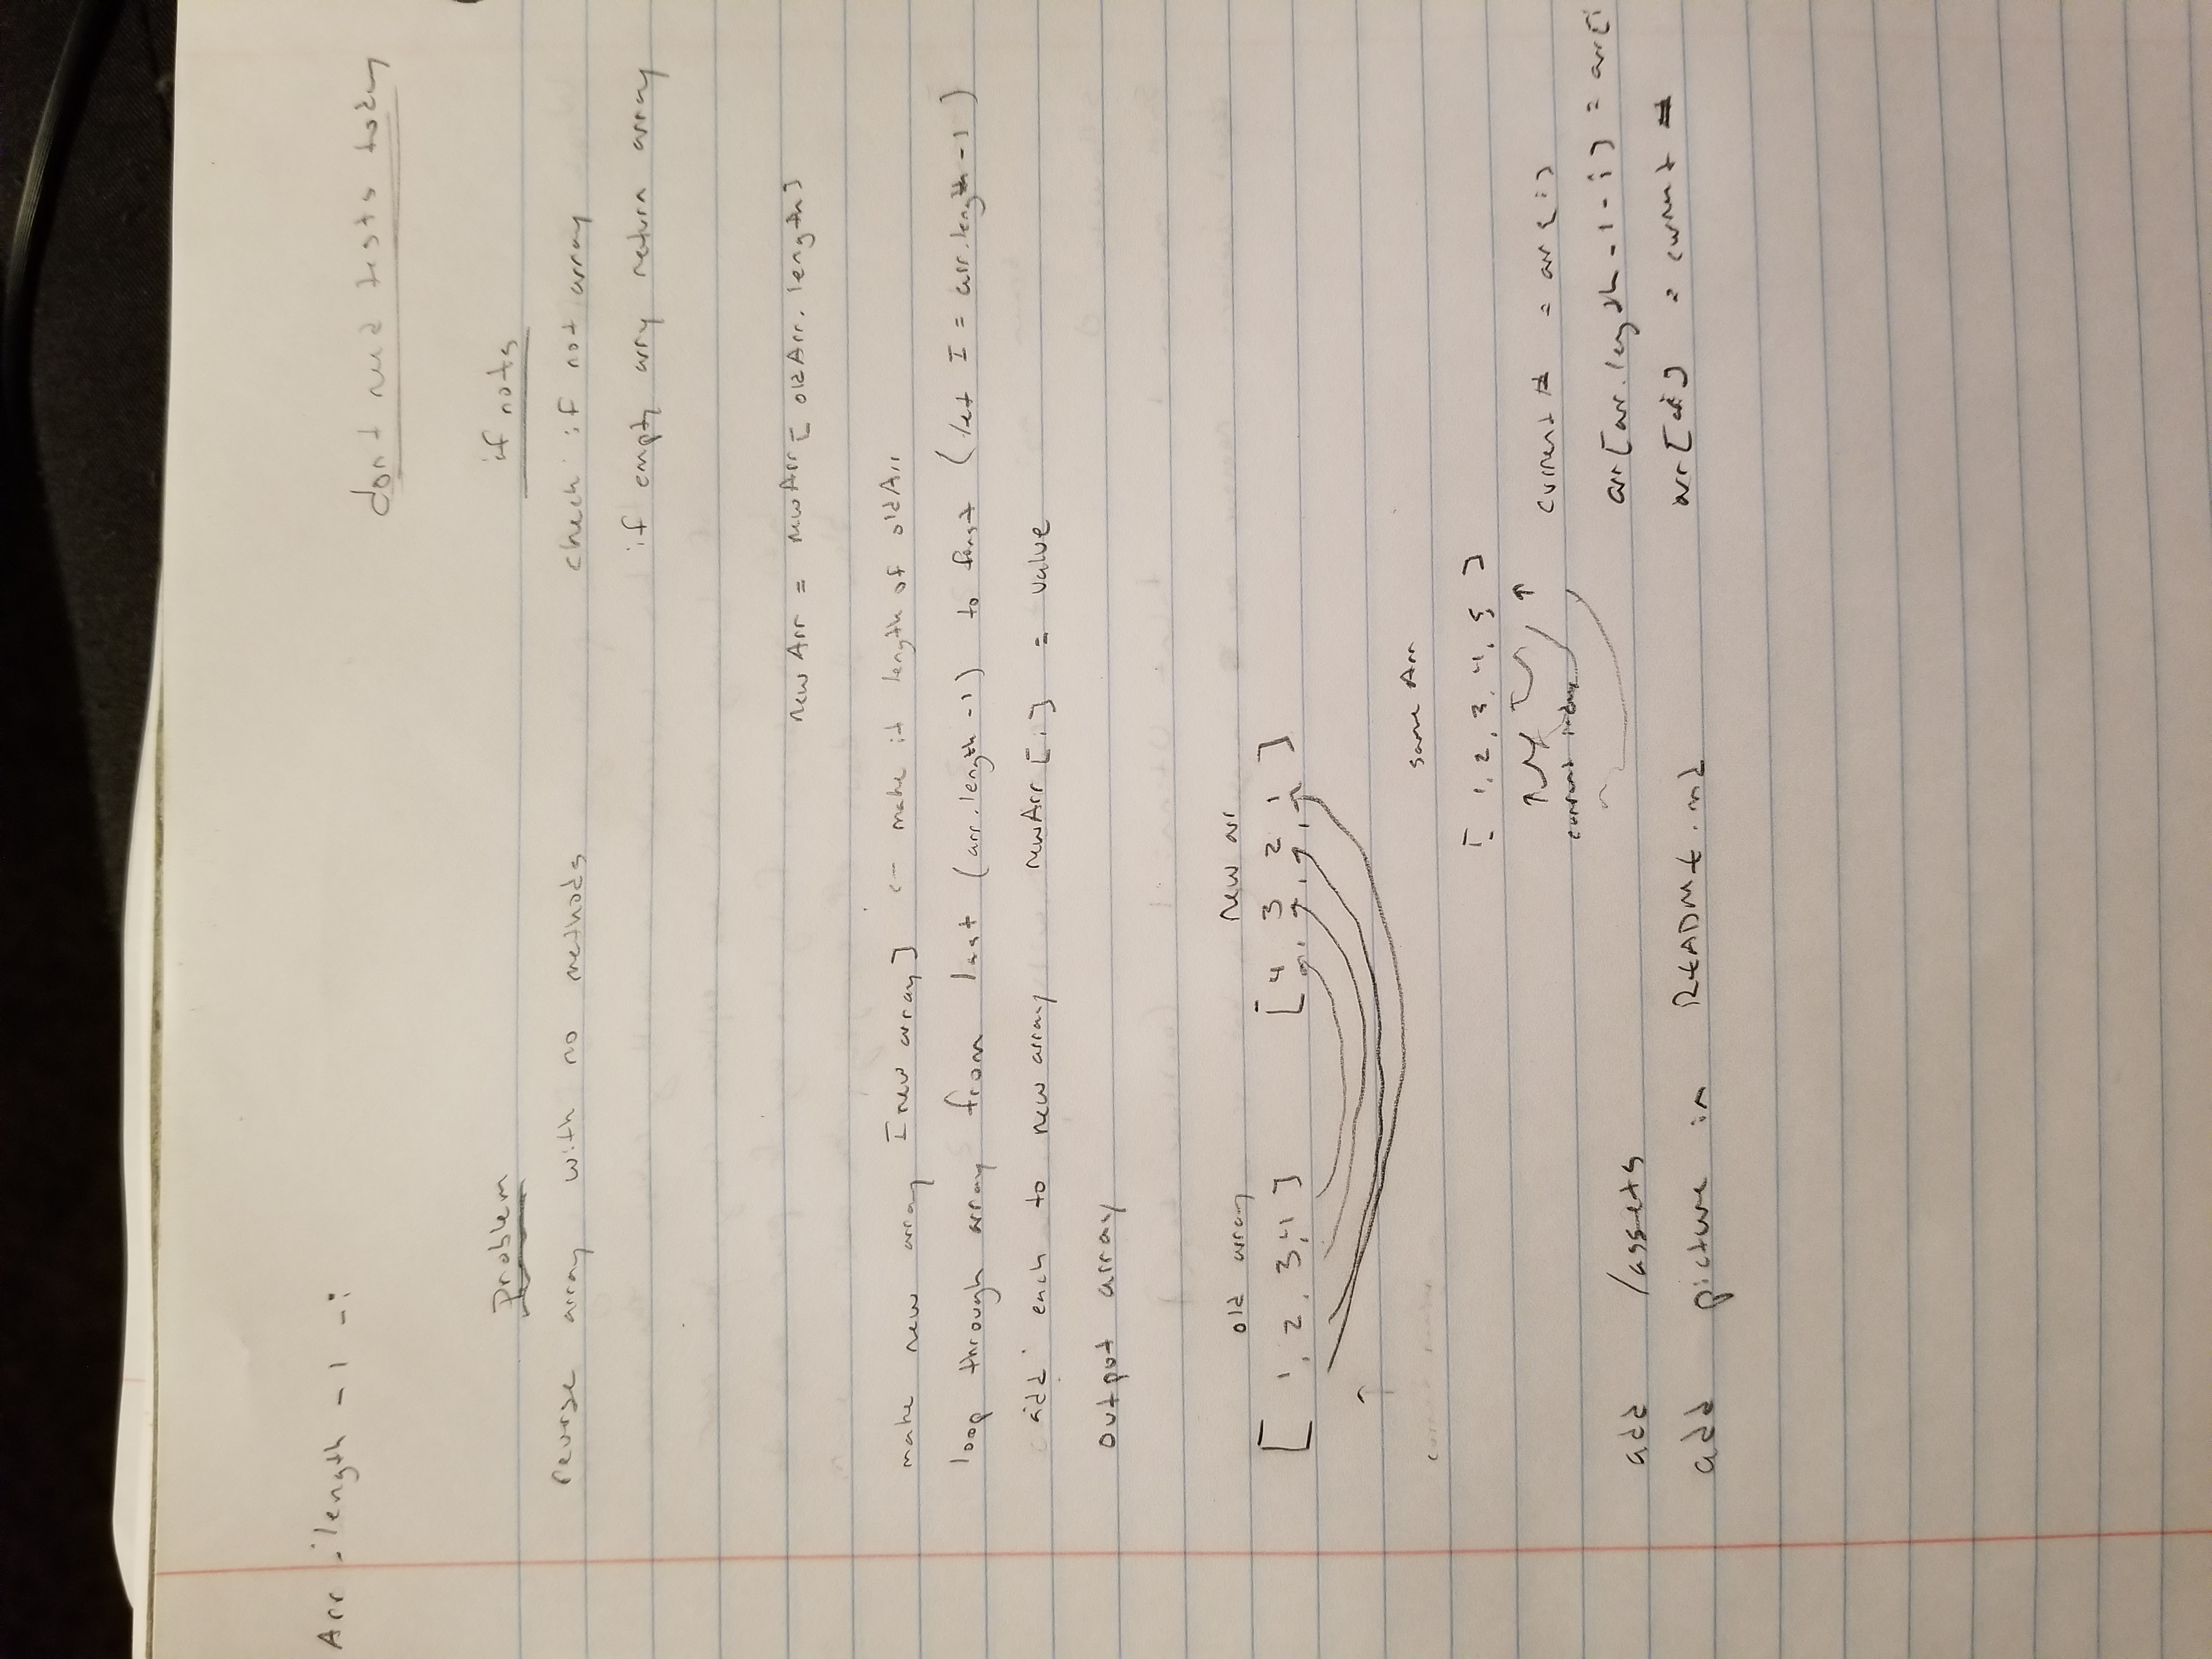 Arr.length - 1 - i
dont need tests today
problem
if nots
reverse array with no methods
check if not array
if empty arry return array
newArr = newArr[oldArr.length]
make new array [new array] <- make it length of oldArr
loop through array from last (arr.length-1) to first (let I = arr.length-1)
add each to new array newArr[i] = value
output array
old array
new arr
[1, 2, 3, 4]
[4, 3, 2, 1]
same Arr
[1, 2, 3, 4, 5]
current index
current # = arr[i]
arr[arr.length-1-i] = arr[i
arr[i] = current #
add /assets
add picture in README.md